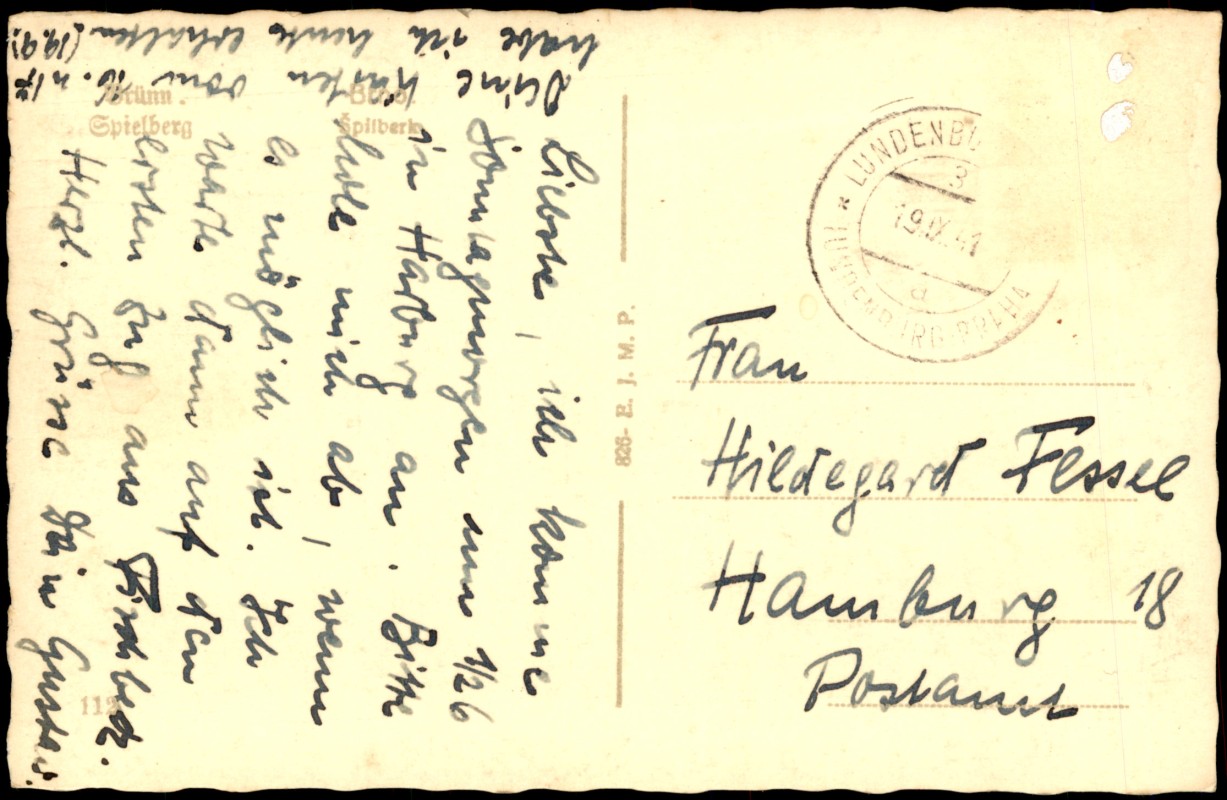 Brünn.
Spielberg
Brno.
Špilberk
Liebste, ich komme
Sonntagmorgen um 1/2 6
in Harburg an. Bitte
hole mich ab, wenn
es möglich ist. Ich
warte dann auf den
ersten Zug aus
Herzl. Grüße Dein Gustav.
Deine Karten vom 16. u. 17.
habe ich heute erhalten (19.9.)
826- E. J. M. P.
112
LUNDENBU
3
19.IX.41
a
Frau
Hildegard Fessel
Hamburg 18
Postamt